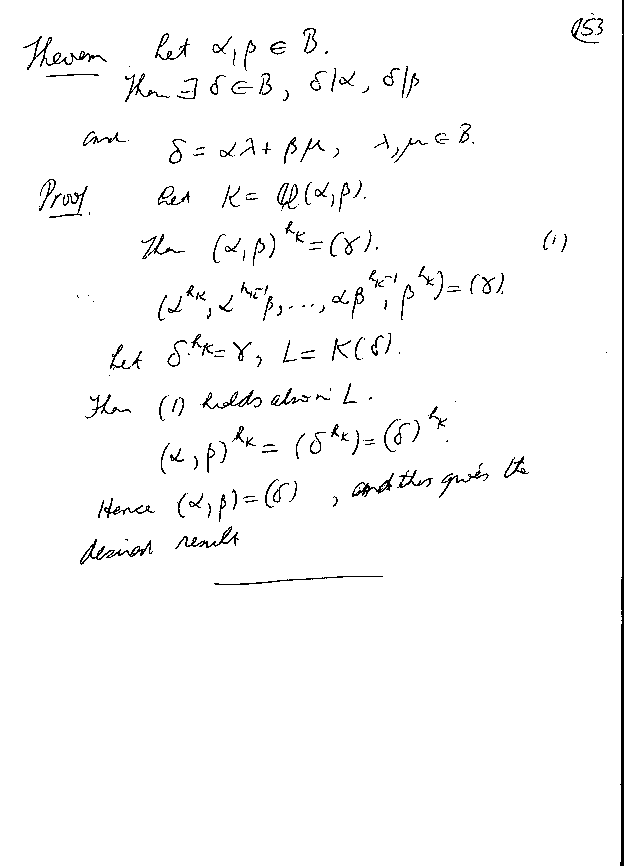 153
Theorem Let α, β ∈ B.
Then ∃ δ ∈ B, δ|α, δ|β
and δ = αλ + βμ, λ, μ ∈ B.
Proof. Let K = ℚ(α, β).
Then (α, β)^{h_K} = (γ). (1)
(α^{h_K}, α^{h_K-1}β, ..., αβ^{h_K-1}, β^{h_K}) = (γ).
Let δ^{h_K} = γ, L = K(δ).
Then (1) holds also in L.
(α, β)^{h_K} = (δ^{h_K}) = (δ)^{h_K}.
Hence (α, β) = (δ), and this gives the
desired result